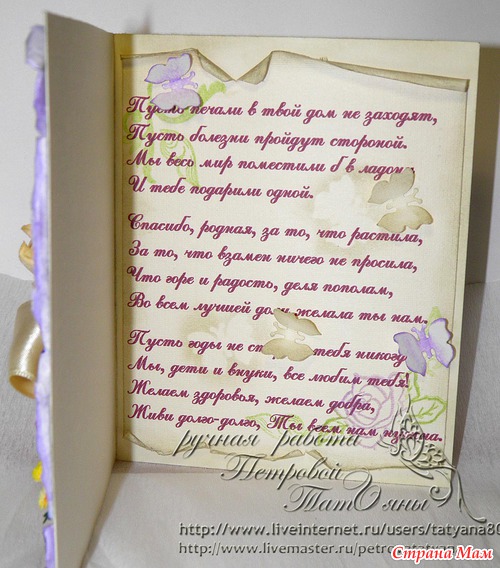 Пусть печали в твой дом не заходят,
Пусть болезни пройдут стороной.
Мы весь мир поместили б в ладони
И тебе подарили одной.
Спасибо, родная, за то, что растила,
За то, что взамен ничего не просила,
Что горе и радость, деля пополам,
Во всем лучшей доли желала ты нам.
Пусть годы не тебя никогда
Мы, дети и внуки, все любим тебя!
Желаем здоровья, желаем добра,
Живи долго-долго, Ты всем нам нужна.
ручная работа
Петровой
Татьяны
http://www.liveinternet.ru/users/tatyana80
http://www.livemaster.ru/
Страна Мам